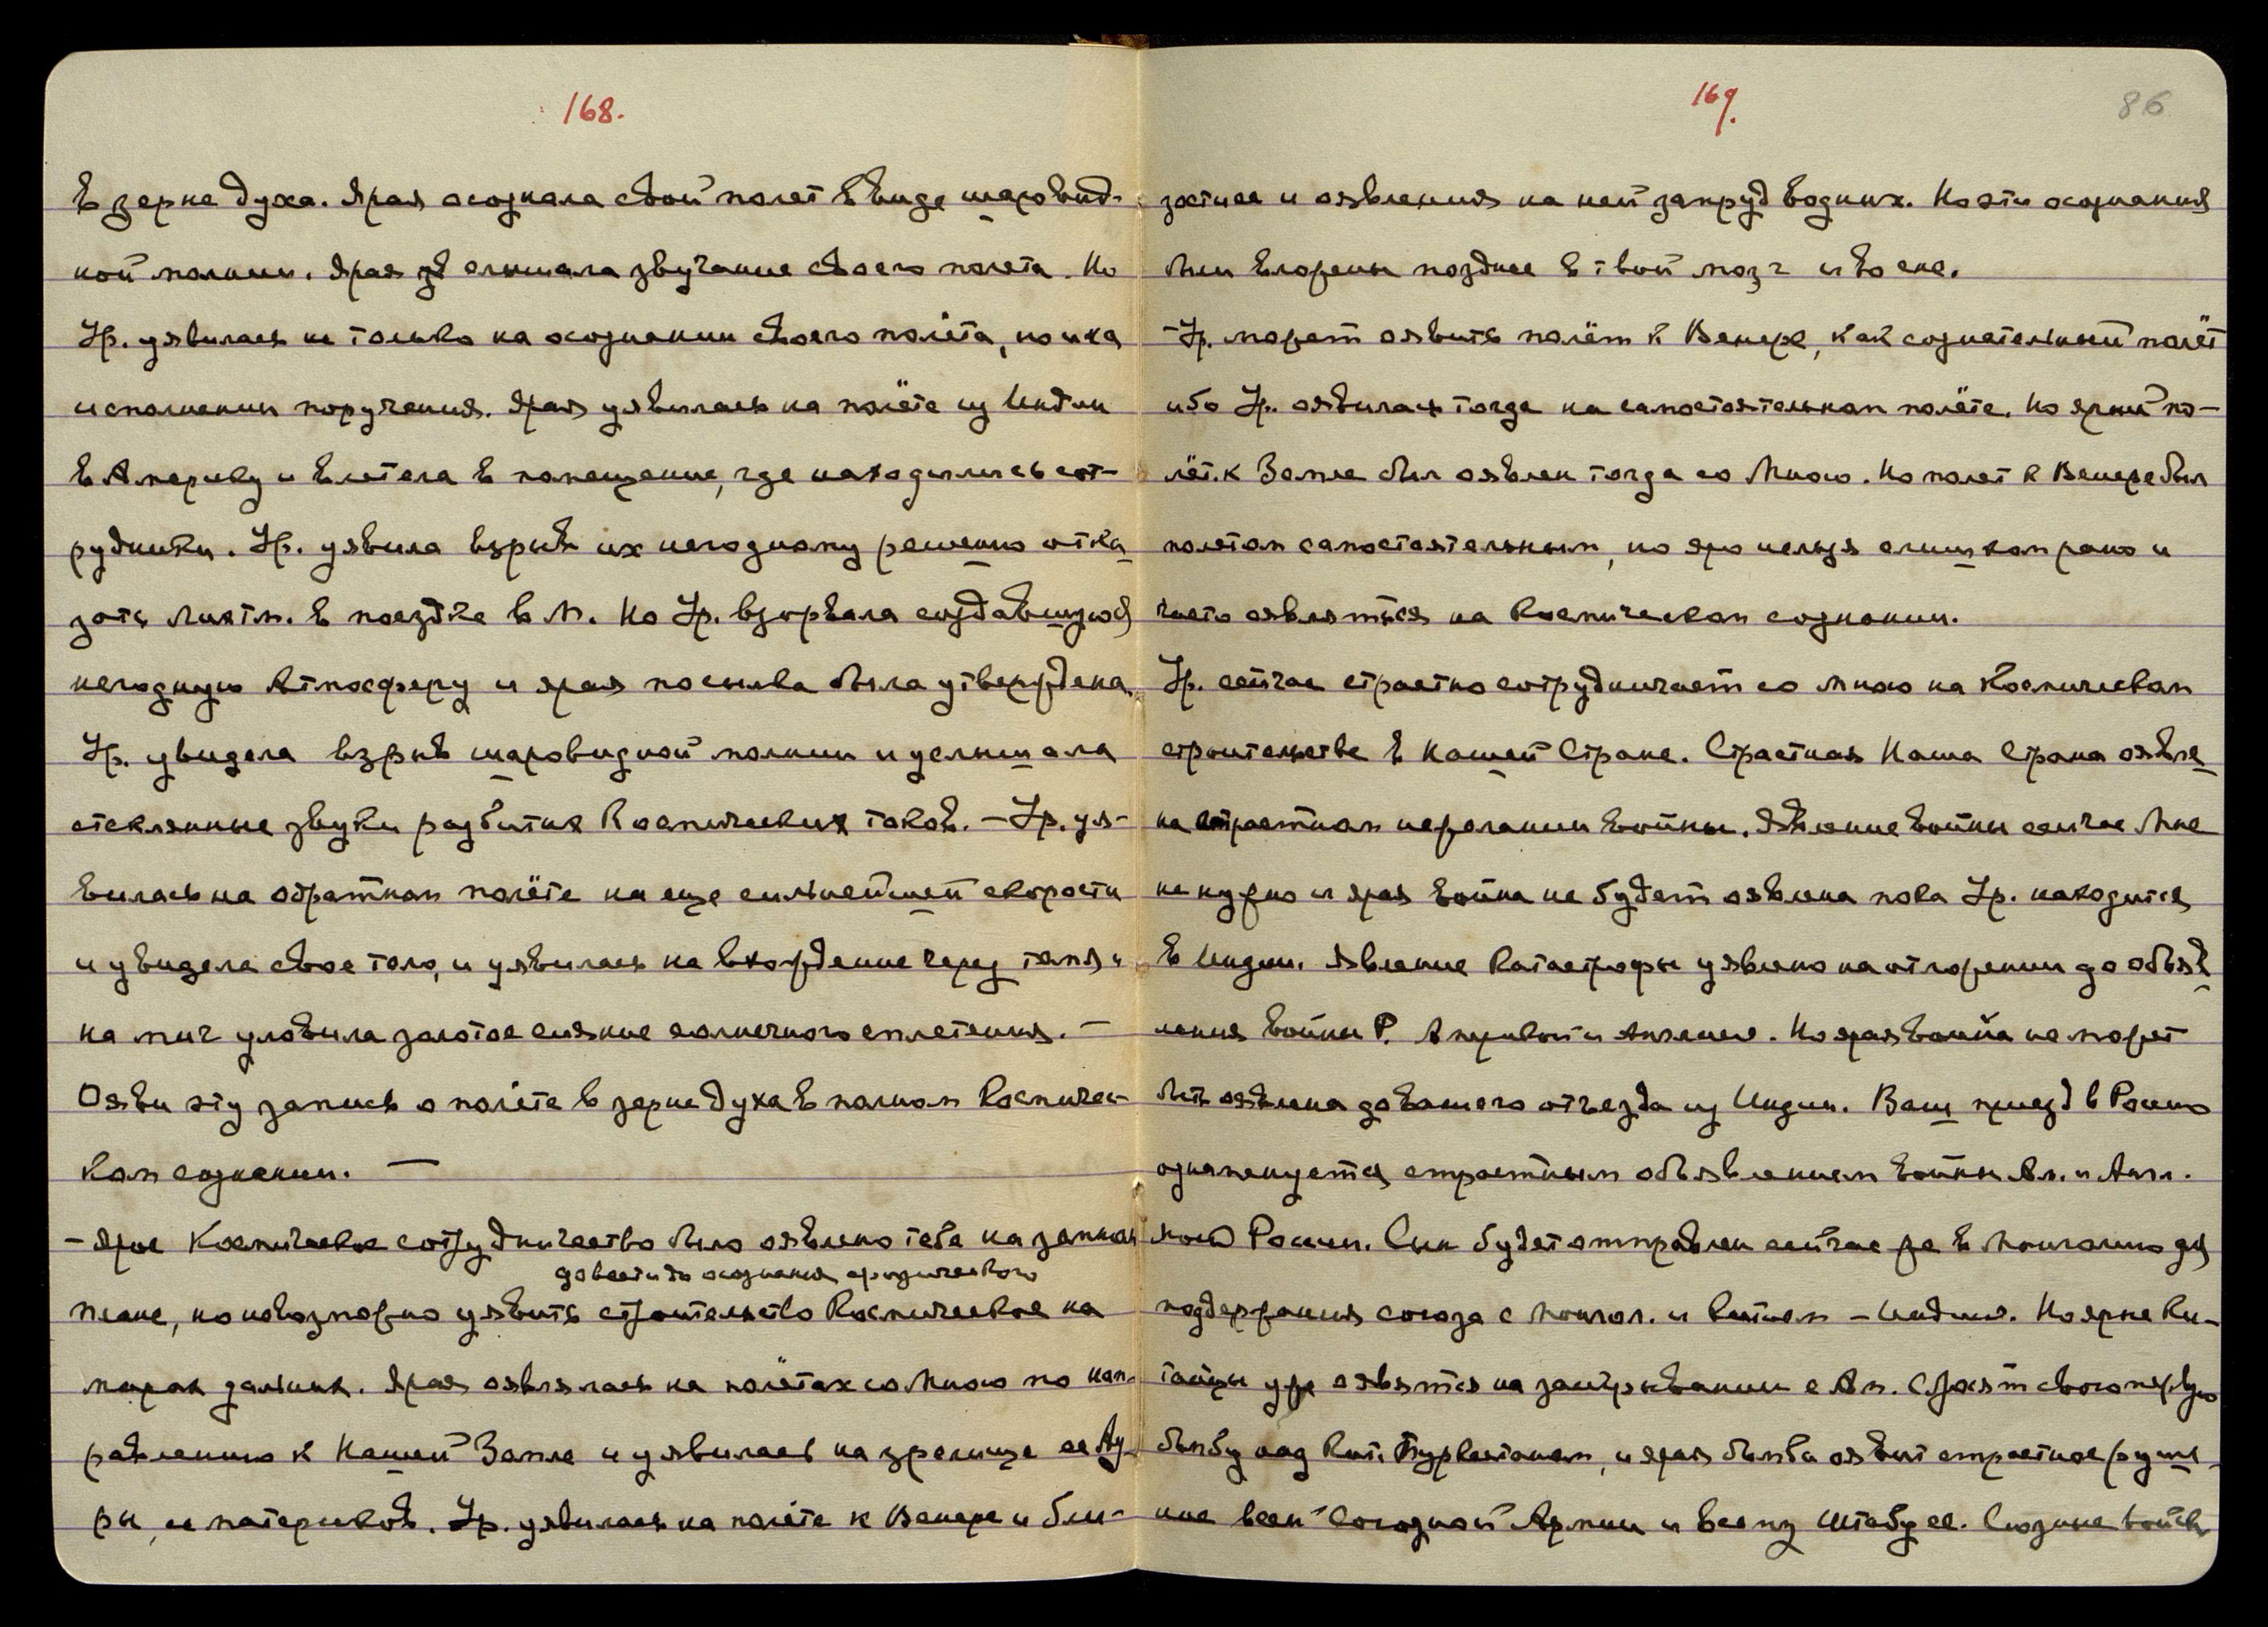 168.
в зерне духа. Ярая осознала свой полет в виде шаровид-
ной молнии. Ярая слышала звучание своего полета. Но
Ур. уявилась не только на осознании своего полёта, но и на
исполнении поручения. Ярая уявилась на полёте из Индии
в Америку и влетела в помещение, где находились сот-
рудники. Ур. уявила взрыв их негодному решению отка
зать в поездке в М. Но Ур. взорвала создавшуюся
негодную Атмосферу и ярая посылка была утверждена.
Ур. увидела взрыв шаровидной молнии и услышала
стеклянные звуки разбития Космических токов. – Ур. уя-
вилась на обратном полёте на еще сильнейшей скорости
и увидела свое тело, и уявилась на вхождение через темя и
на миг уловила золотое сияние солнечного сплетения. –
Ояви эту запись о полёте в зерне духа в полном Космичес-
ком сознании. –
– Ярое Космическое сотрудничество было оявлено тебе на земном
довести до осознания физического
плане, но невозможно уявить строительство Космическое на
мирах дальних. Ярая оявлялась на полётах со Мною по нап-
равлению к Нашей Земле и уявилась на зрелище ее Ау-
ры, ее материков. Ур. уявилась на полёте к Венере и бли-
169.
86
зостнее и оявления на ней запруд водных. Но эти осознания
были вложены позднее в твой мозг и во сне.
– Ур. может оявить полёт к Венере, как сознательный полёт
ибо Ур. оявилась тогда на самостоятельном полёте. Но ярый по-
лёт к Земле был оявлен тогда со Мною. Но полет к Венере был
полетом самостоятельным, но яро нельзя слишком рано и
часто оявляться на Космическом сознании.
Ур. сейчас страстно сотрудничает со Мною на Космическом
строительстве в Нашей Стране. Страстная Наша Страна оявле
на страстном нежелании войны. Явление войны сейчас Мне
не нужно и ярая война не будет оявлена пока Ур. находится
в Индии. Явление Катастрофы уявлено на отложении до объяв
ления войны Р. Америкой и Англией. Но ярая война не может
быть оявлена до вашего отъезда из Индии. Ваш приезд в Россию
ознаменуется страстным объявлением войны Ам. и Англ.
Моей России. Сын будет отправлен сейчас же в Монголию для
поддержания союза с Монгол. и Китаем – Индией. Но ярые Ки-
тайцы уже оявятся на заигрывании с Ам. Сбросят свою первую
бомбу над Кит. Туркестаном, и ярая бомба оявит страстное руше
ние всей Союзной Армии и всему Штабу ее. Союзные войск